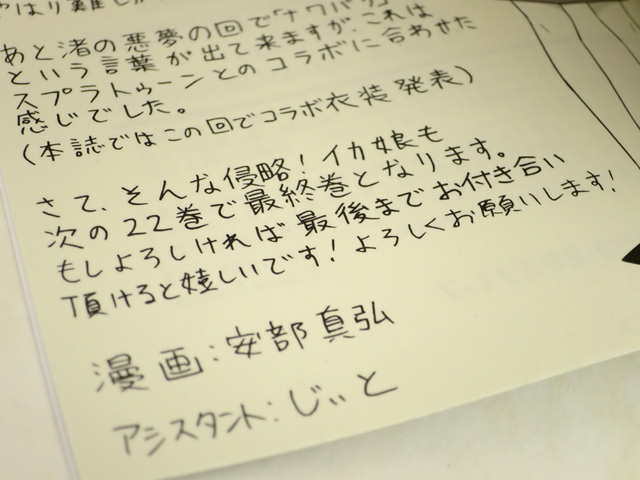 やはり難し
あと渚の悪夢の回で「ナワバリ」
という言葉が出て来ますが、これは
スプラトゥーンとのコラボに合わせた
感じでした。
(本誌ではこの回でコラボ衣装発表)
さて、そんな侵略!イカ娘も
次の22巻で最終巻となります。
もしよろしければ最後までお付き合い
頂けると嬉しいです!よろしくお願いします!
漫画:安部真弘
アシスタント:じぃと